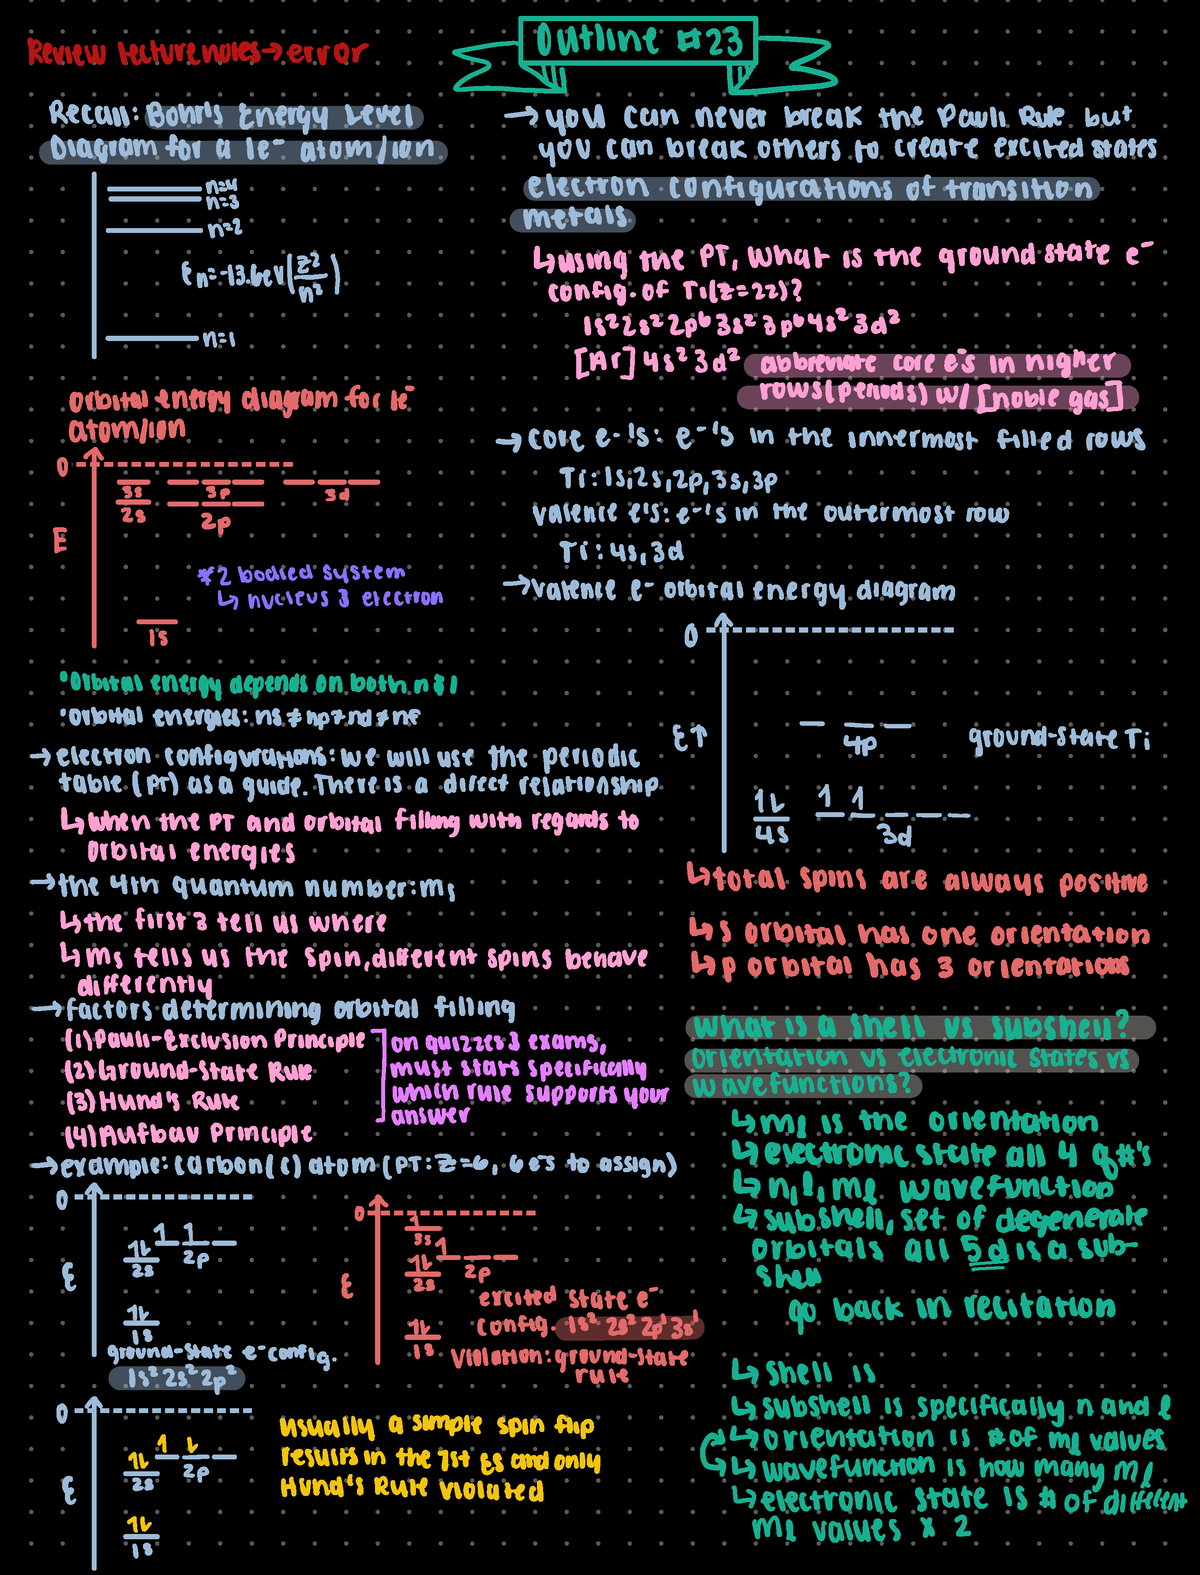 Review lecture notes → error
Outline #23
Recall: Bohr's Energy Level
Diagram for a 1e⁻ atom/ion
n=4
n=3
n=2
En=-13.6eV(z²/n²)
n=1
orbital energy diagram for 1e⁻
atom/ion
0
3s 3p 3d
2s 2p
E
*2 bodied system
↳ nucleus & electron
1s
•Orbital energy depends on both n & l
•Orbital energies: ns ≠ np ≠ nd ≠ nf
→ electron configurations: we will use the periodic
table (PT) as a guide. There is a direct relationship
↳ when the PT and orbital filling with regards to
orbital energies
→ the 4th quantum number: ms
↳ the first 3 tell us where
↳ ms tells us the spin, different spins behave
differently
→ factors determining orbital filling
(1) Pauli-Exclusion Principle
(2) Ground-State Rule
(3) Hund's Rule
(4) Aufbau Principle
on quizzes & exams,
must stats specifically
which rule supports your
answer
→ example: Carbon (C) atom (PT: Z=6, 6 e⁻s to assign)
0
E
1 1
1L
2s 2p
1L
1s
ground-state e⁻ config.
1s² 2s² 2p²
0
E
1
3s
1
1L
2s 2p
1L
1s
excited state e⁻
config. 1s² 2s² 2p¹ 3s¹
Violation: ground-state
rule
0
E
1 L
1L
2s 2p
1L
1s
usually a simple spin flip
results in the 1st ES and only
Hund's Rule violated
→ you can never break the Pauli Rule but
you can break others to create excited states
electron configurations of transition
metals
↳ using the PT, what is the ground state e⁻
config. of Ti (Z=22)?
1s² 2s² 2p⁶ 3s² 3p⁶ 4s² 3d²
[Ar] 4s² 3d² abbreviate core e⁻s in higher
rows (periods) w/ [noble gas]
→ core e-'s: e-'s in the innermost filled rows
Ti: 1s, 2s, 2p, 3s, 3p
valence e's: e-'s in the outermost row
Ti: 4s, 3d
→ valence e- orbital energy diagram
0
E↑
4p
ground-state Ti
1L 1 1
4s 3d
↳ total spins are always positive
↳ s orbital has one orientation
↳ p orbital has 3 orientations
What is a shell vs subshell?
orientation vs electronic states vs
wavefunctions?
↳ ml is the orientation
↳ electronic state all 4 q#'s
↳ n, l, ml wavefunction
↳ subshell, set of degenerate
orbitals all 5 d is a sub-
shell
go back in recitation
↳ shell is
↳ subshell is specifically n and l
↳ orientation is # of ml values
↳ wavefunction is how many ml
↳ electronic state is # of different
ml values x 2